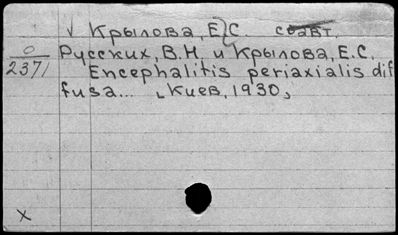 √ Крылова, Е.С. соавт.
0
2371
Русских, В.Н. и Крылова, Е.С.
Encephalitis periaxialis dif
fusa... Киев, 1930,
X